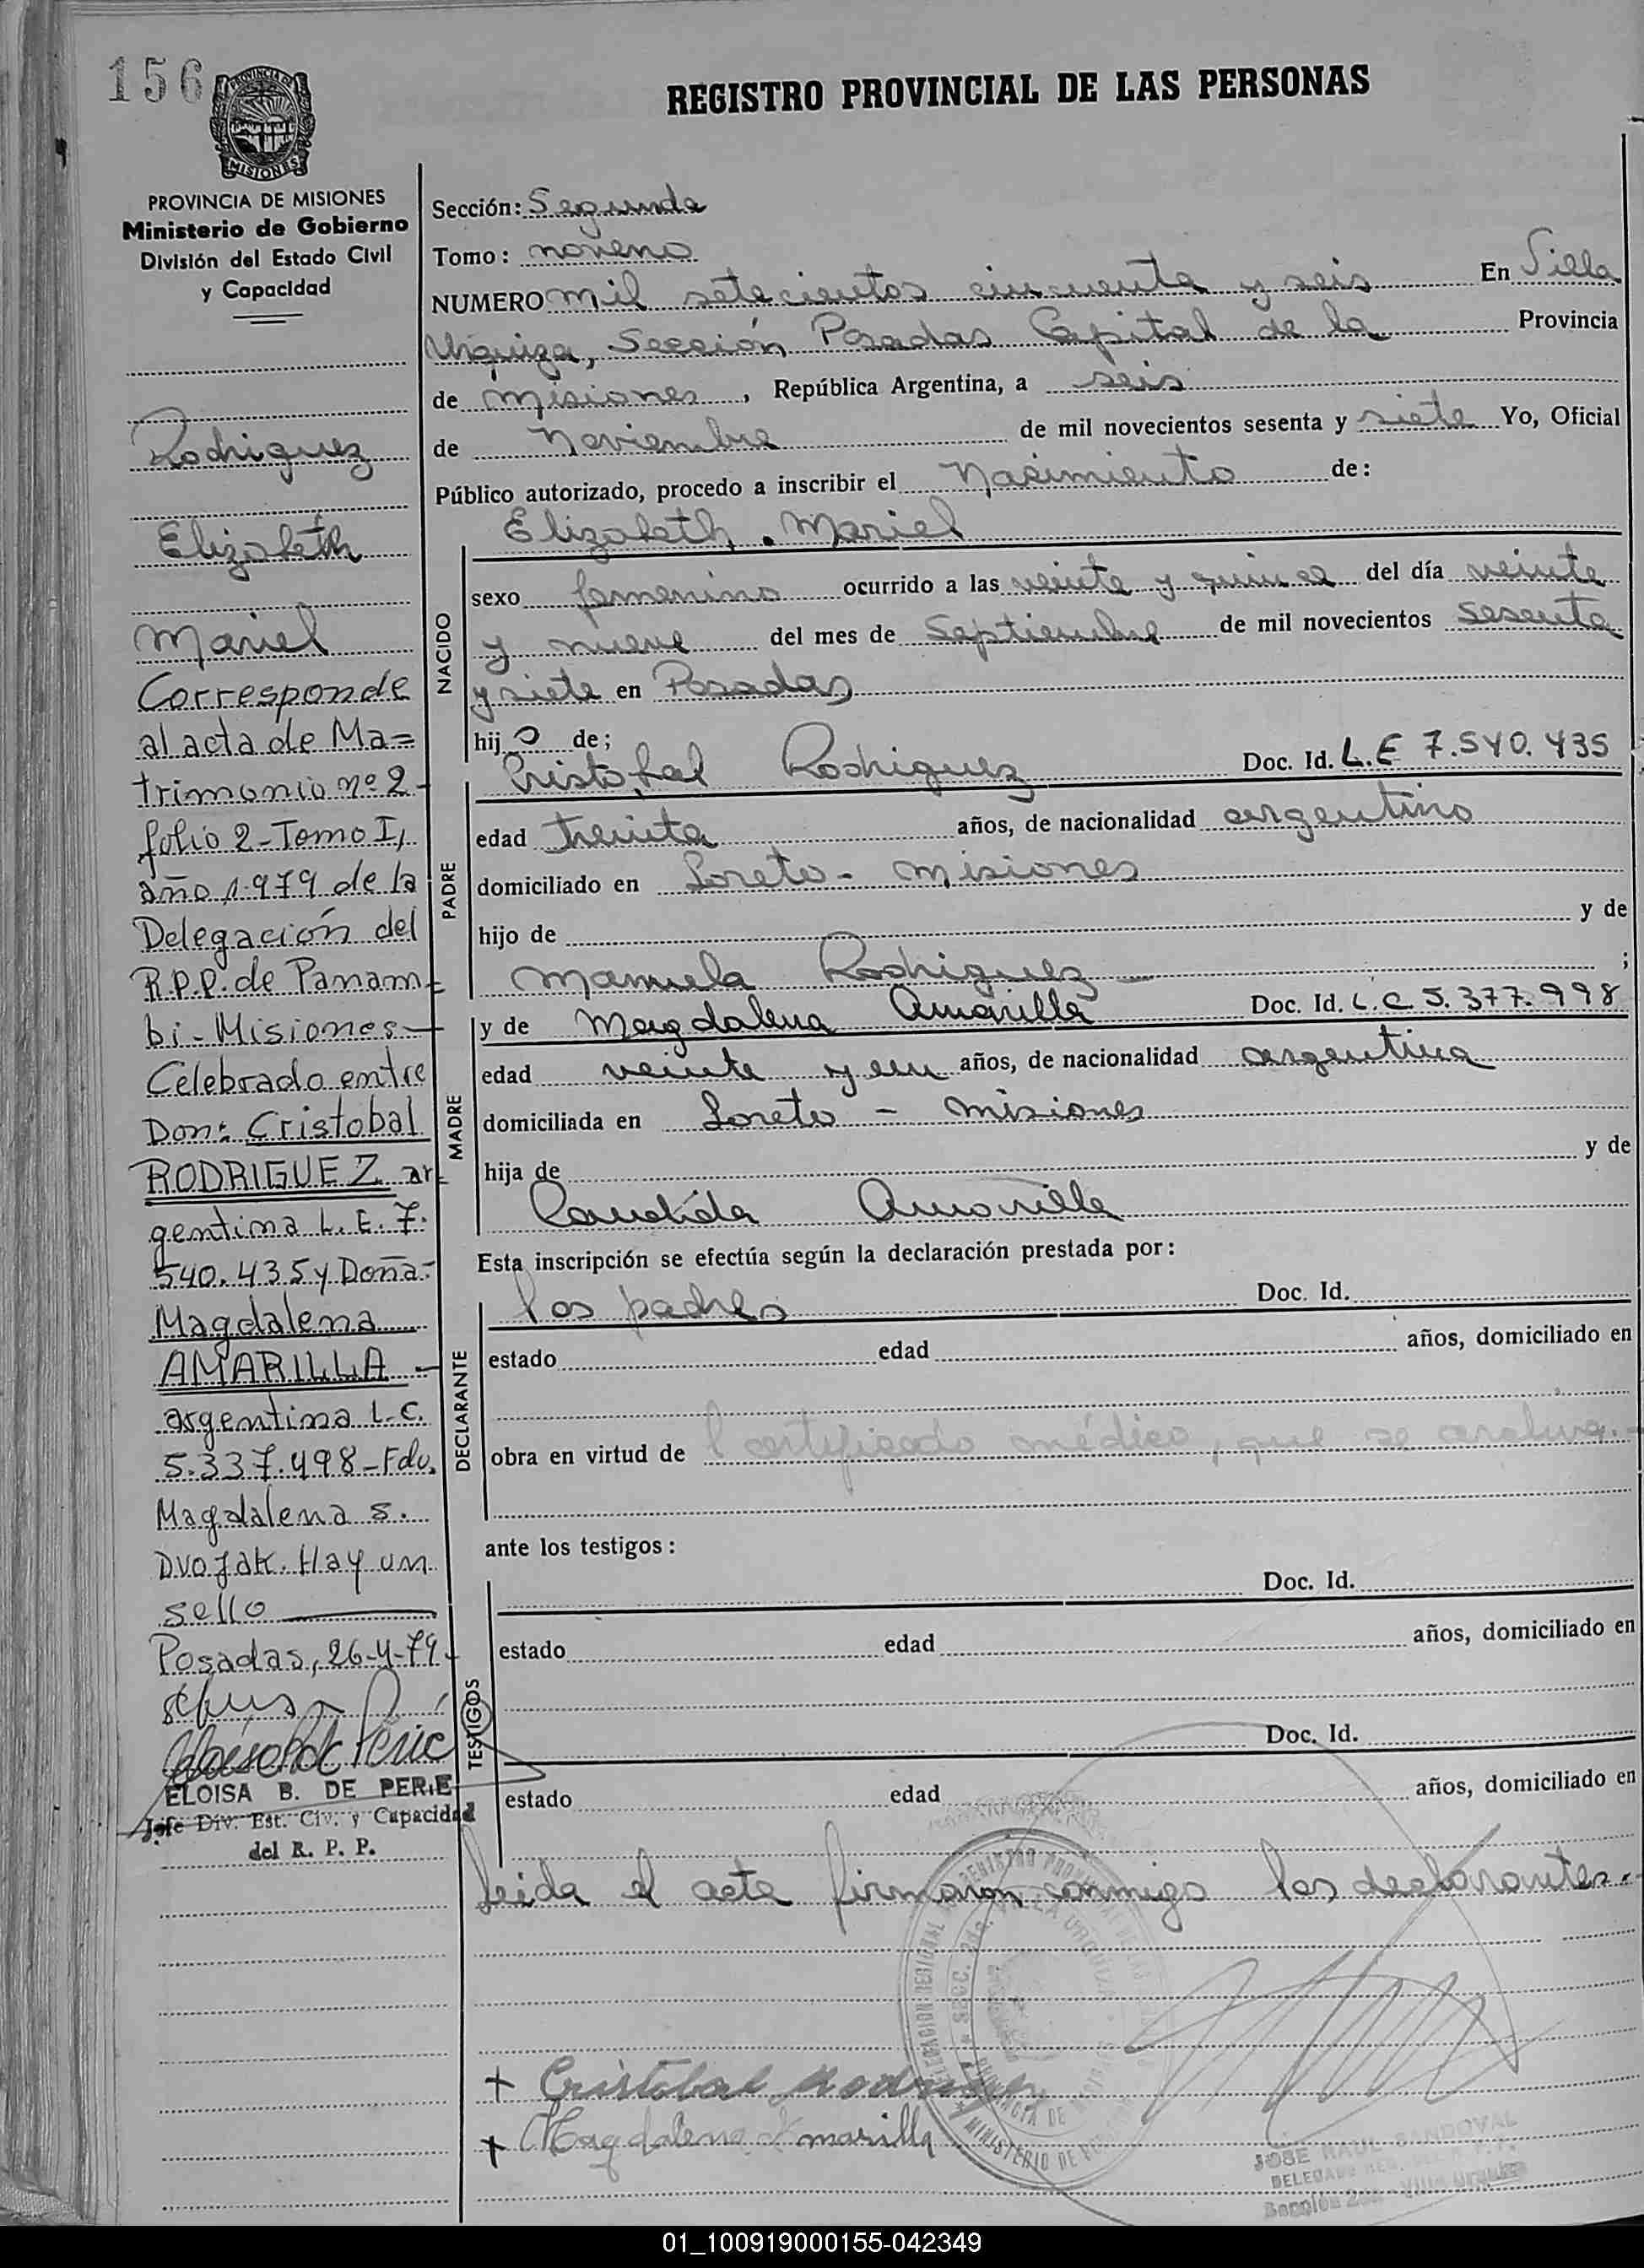 156
PROVINCIA DE
MISIONES
REGISTRO PROVINCIAL DE LAS PERSONAS
PROVINCIA DE MISIONES
Ministerio de Gobierno
División del Estado Civil
y Capacidad
Rodriguez
Elizabeth
Mariel
Corresponde
al acta de Ma=
trimonio nº 2-
folio 2-Tomo I,
año 1.979 de la
Delegación del
R.P.P. de Panam-
bi-Misiones-
Celebrado entre
Don: Cristobal
RODRIGUEZ ar-
gentina L.E. 7.
540.435 y Doña-
Magdalena
AMARILLA-
argentina L.C.
5.337.498-Fdo.
Magdalena S.
Dvojak. Hay un
sello
Posadas, 26-4-79-
ELOISA B. DE PERIE
Jefe Div. Est. Civ. y Capacidad
del R. P. P.
Sección: Segunda
Tomo: noveno
NUMERO mil setecientos cincuenta y seis En Villa
Urquiza, Sección Posadas Capital de la Provincia
de Misiones, República Argentina, a seis
de Noviembre de mil novecientos sesenta y siete Yo, Oficial
Público autorizado, procedo a inscribir el Nacimiento de:
Elizabeth. Mariel
NACIDO
sexo femenino ocurrido a las veinte y quince del día veinte
y nueve del mes de Septiembre de mil novecientos sesenta
y siete en Posadas
hij a de;
Cristobal Rodriguez Doc. Id. L.E 7.540.435
PADRE
edad treinta años, de nacionalidad argentino
domiciliado en Loreto - Misiones
hijo de y de
Manuela Rodriguez ;
y de Magdalena Amarilla Doc. Id. L.C 5.377.998
MADRE
edad veinte y un años, de nacionalidad argentina
domiciliada en Loreto - Misiones
hija de y de
Candida Amarilla
Esta inscripción se efectúa según la declaración prestada por:
DECLARANTE
los padres Doc. Id.
estado edad años, domiciliado en
obra en virtud de certificado médico, que se archiva.-
ante los testigos:
TESTIGOS
Doc. Id.
estado edad años, domiciliado en
Doc. Id.
estado edad años, domiciliado en
Leida el acta firmaron conmigo los declarantes.-
+ Cristobal Rodriguez
+ Magdalena Amarilla
JOSE RAUL SANDOVAL
Sección 2da - Villa Urquiza
01_100919000155-042349